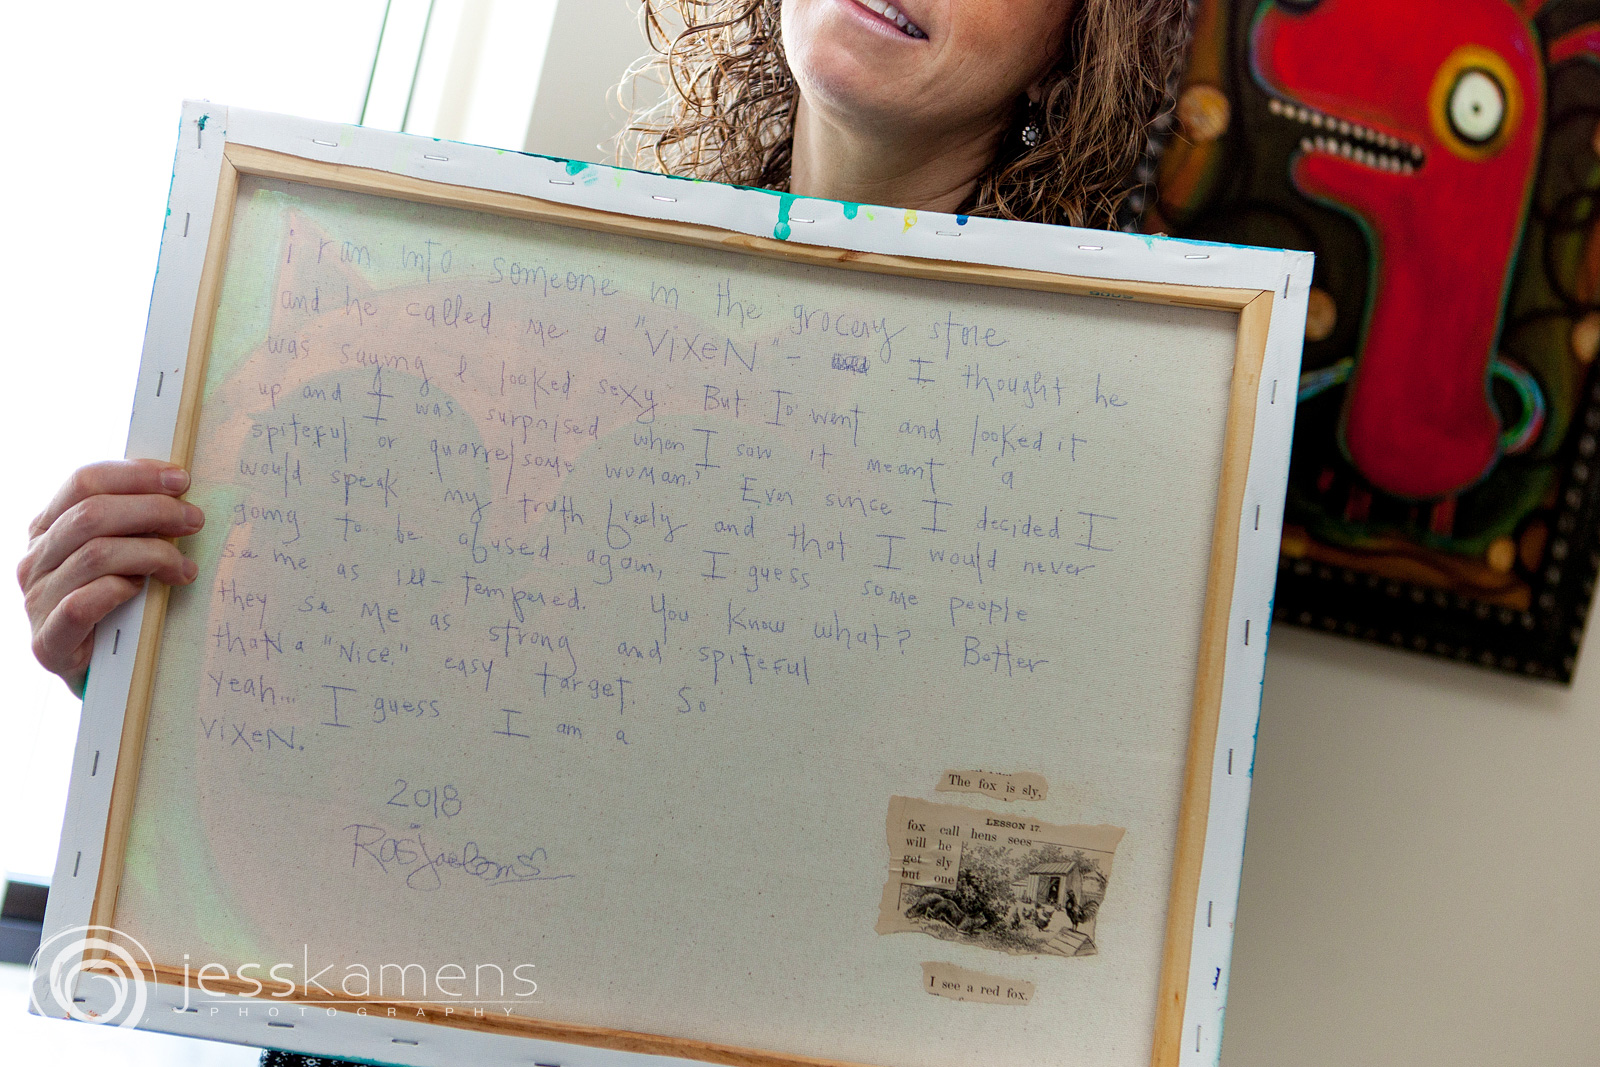 i ran into someone in the grocery store
and he called me a "VixeN" - I thought he
was saying I looked sexy. But I went and looked it
up and I was surprised when I saw it meant 'a
spiteful or quarrelsome woman.' Ever since I decided I
would speak my truth freely and that I would never
going to be abused again, I guess some people
see me as ill-tempered. You know what? Better
they see me as strong and spiteful
than a "Nice." easy target. So
yeah... I guess I am a
VixeN.
2018
The fox is sly,
LESSON 17.
fox call hens sees
will he
get sly
but one
I see a red fox.
jesskamens
PHOTOGRAPHY